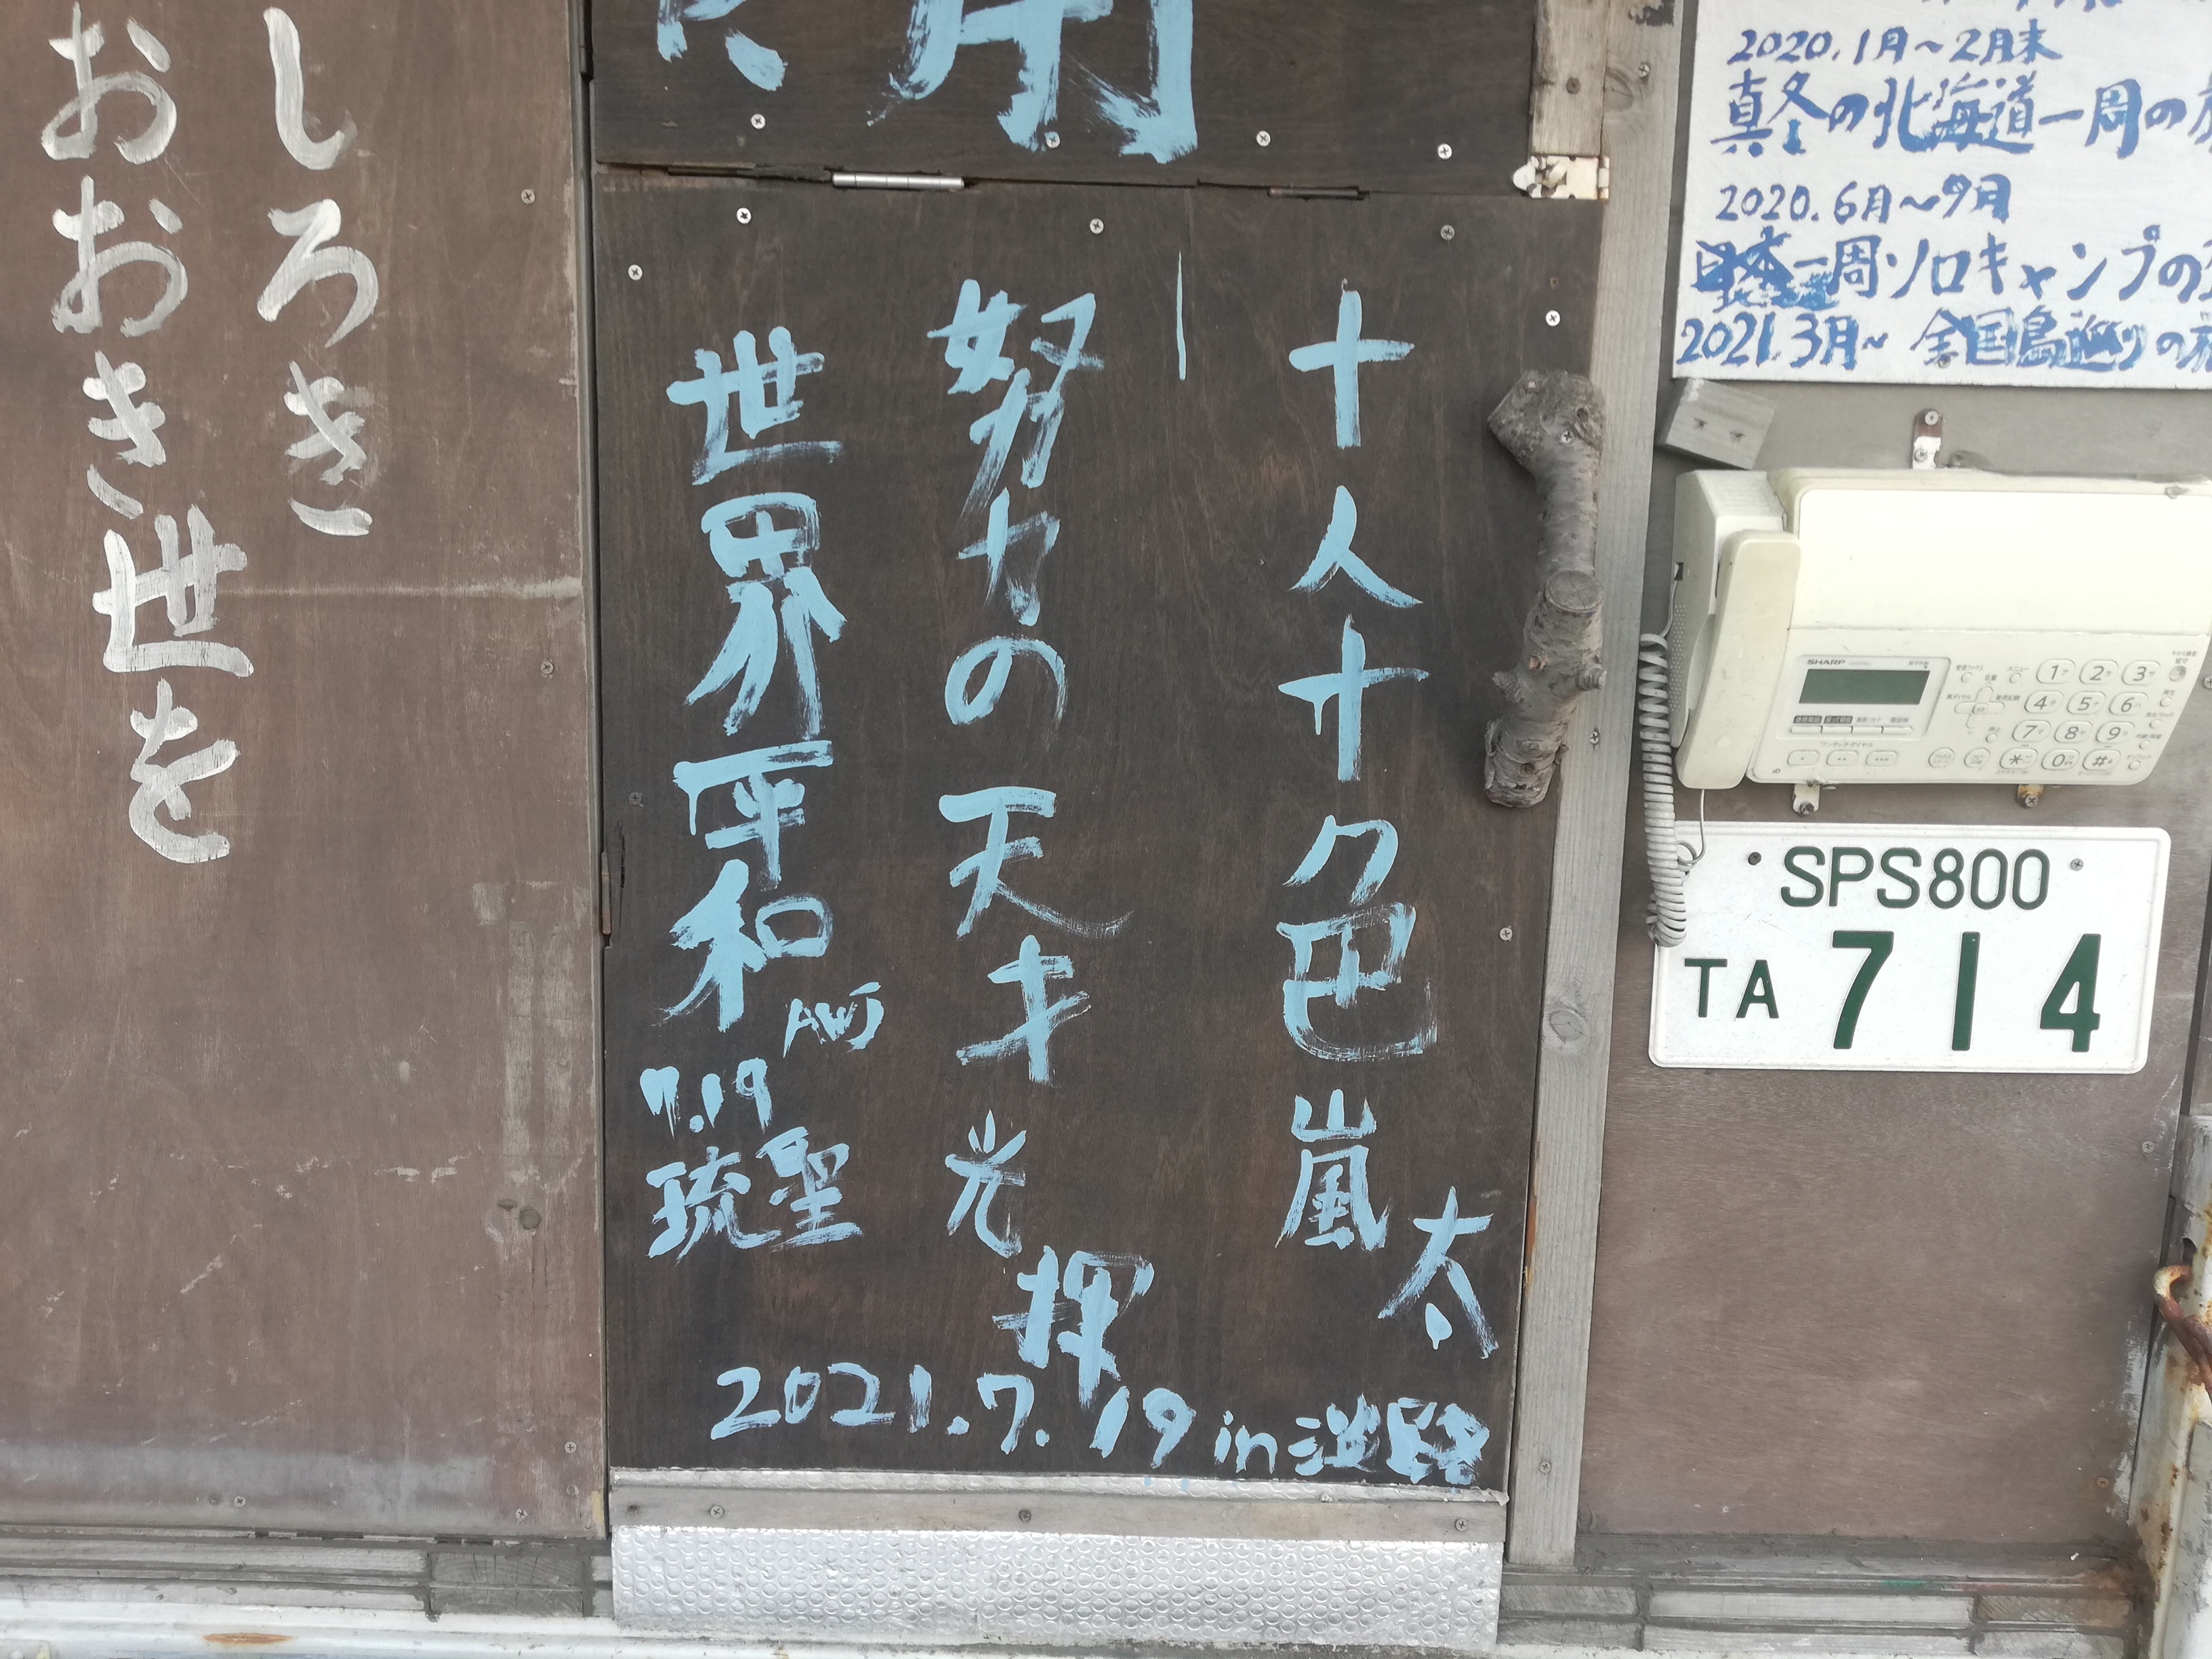 しろき
おおき世を
用
十人十色 嵐太
努力の天才 光揮
世界平和 AWJ
7.19
琉聖
2021.7.19 in 淡路
2020.1月～2月末
真冬の北海道一周の
2020.6月～9月
日本一周ソロキャンプの
2021.3月～ 全国島巡りの旅
SHARP
1 2 3
4 5 6
7 8 9
* 0 #
SPS800
TA 714